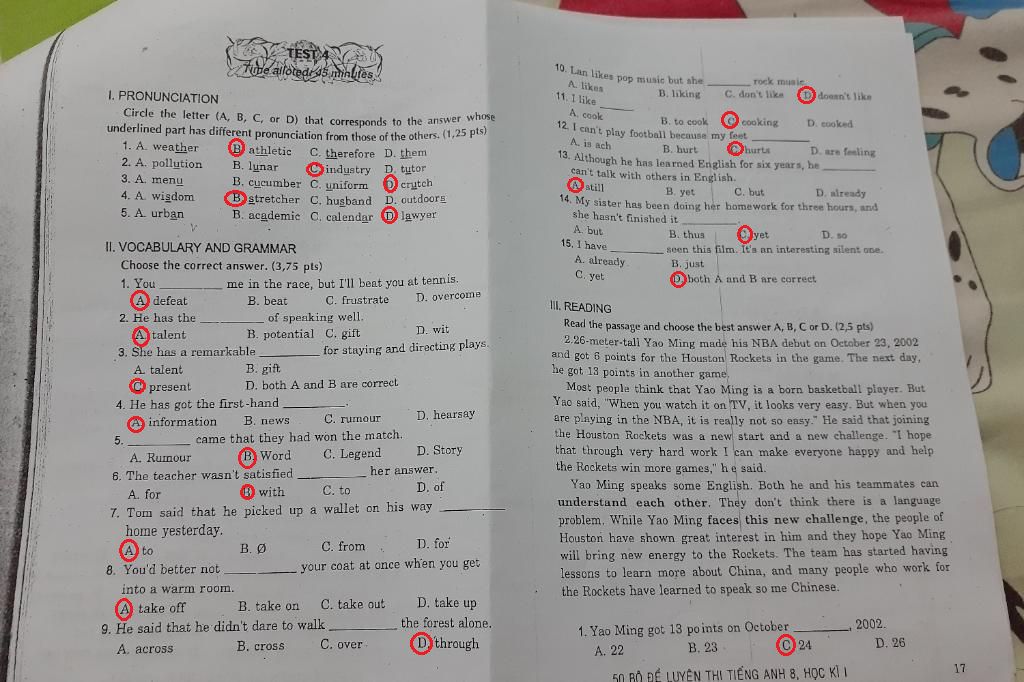 TEST 4
Time alloted: 45 minutes
I. PRONUNCIATION
Circle the letter (A, B, C, or D) that corresponds to the answer whose
underlined part has different pronunciation from those of the others. (1,25 pts)
1. A. weather B. athletic C. therefore D. them
2. A. pollution B. lunar C. industry D. tutor
3. A. menu B. cucumber C. uniform D. crutch
4. A. wisdom B. stretcher C. husband D. outdoors
5. A. urban B. academic C. calendar D. lawyer
II. VOCABULARY AND GRAMMAR
Choose the correct answer. (3,75 pts)
1. You ________ me in the race, but I'll beat you at tennis.
A. defeat B. beat C. frustrate D. overcome
2. He has the ________ of speaking well.
A. talent B. potential C. gift D. wit
3. She has a remarkable ________ for staying and directing plays.
A. talent B. gift
C. present D. both A and B are correct
4. He has got the first-hand ________.
A. information B. news C. rumour D. hearsay
5. ________ came that they had won the match.
A. Rumour B. Word C. Legend D. Story
6. The teacher wasn't satisfied ________ her answer.
A. for B. with C. to D. of
7. Tom said that he picked up a wallet on his way ________
home yesterday.
A. to B. Ø C. from D. for
8. You'd better not ________ your coat at once when you get
into a warm room.
A. take off B. take on C. take out D. take up
9. He said that he didn't dare to walk ________ the forest alone.
A. across B. cross C. over D. through
10. Lan likes pop music but she ________ rock music.
A. likes B. liking C. don't like D. doesn't like
11. I like ________
A. cook B. to cook C. cooking D. cooked
12. I can't play football because my feet ________
A. is ach B. hurt C. hurts D. are feeling
13. Although he has learned English for six years, he ________
can't talk with others in English.
A. still B. yet C. but D. already
14. My sister has been doing her homework for three hours, and
she hasn't finished it ________.
A. but B. thus C. yet D. so
15. I have ________ seen this film. It's an interesting silent one.
A. already B. just
C. yet D. both A and B are correct
III. READING
Read the passage and choose the best answer A, B, C or D. (2,5 pts)
2.26-meter-tall Yao Ming made his NBA debut on October 23, 2002
and got 6 points for the Houston Rockets in the game. The next day,
he got 13 points in another game.
Most people think that Yao Ming is a born basketball player. But
Yao said, "When you watch it on TV, it looks very easy. But when you
are playing in the NBA, it is really not so easy." He said that joining
the Houston Rockets was a new start and a new challenge. "I hope
that through very hard work I can make everyone happy and help
the Rockets win more games," he said.
Yao Ming speaks some English. Both he and his teammates can
understand each other. They don't think there is a language
problem. While Yao Ming faces this new challenge, the people of
Houston have shown great interest in him and they hope Yao Ming
will bring new energy to the Rockets. The team has started having
lessons to learn more about China, and many people who work for
the Rockets have learned to speak so me Chinese.
1. Yao Ming got 13 points on October ________, 2002.
A. 22 B. 23 C. 24 D. 26
50 BỘ ĐỀ LUYỆN THI TIẾNG ANH 8, HỌC KÌ I 17